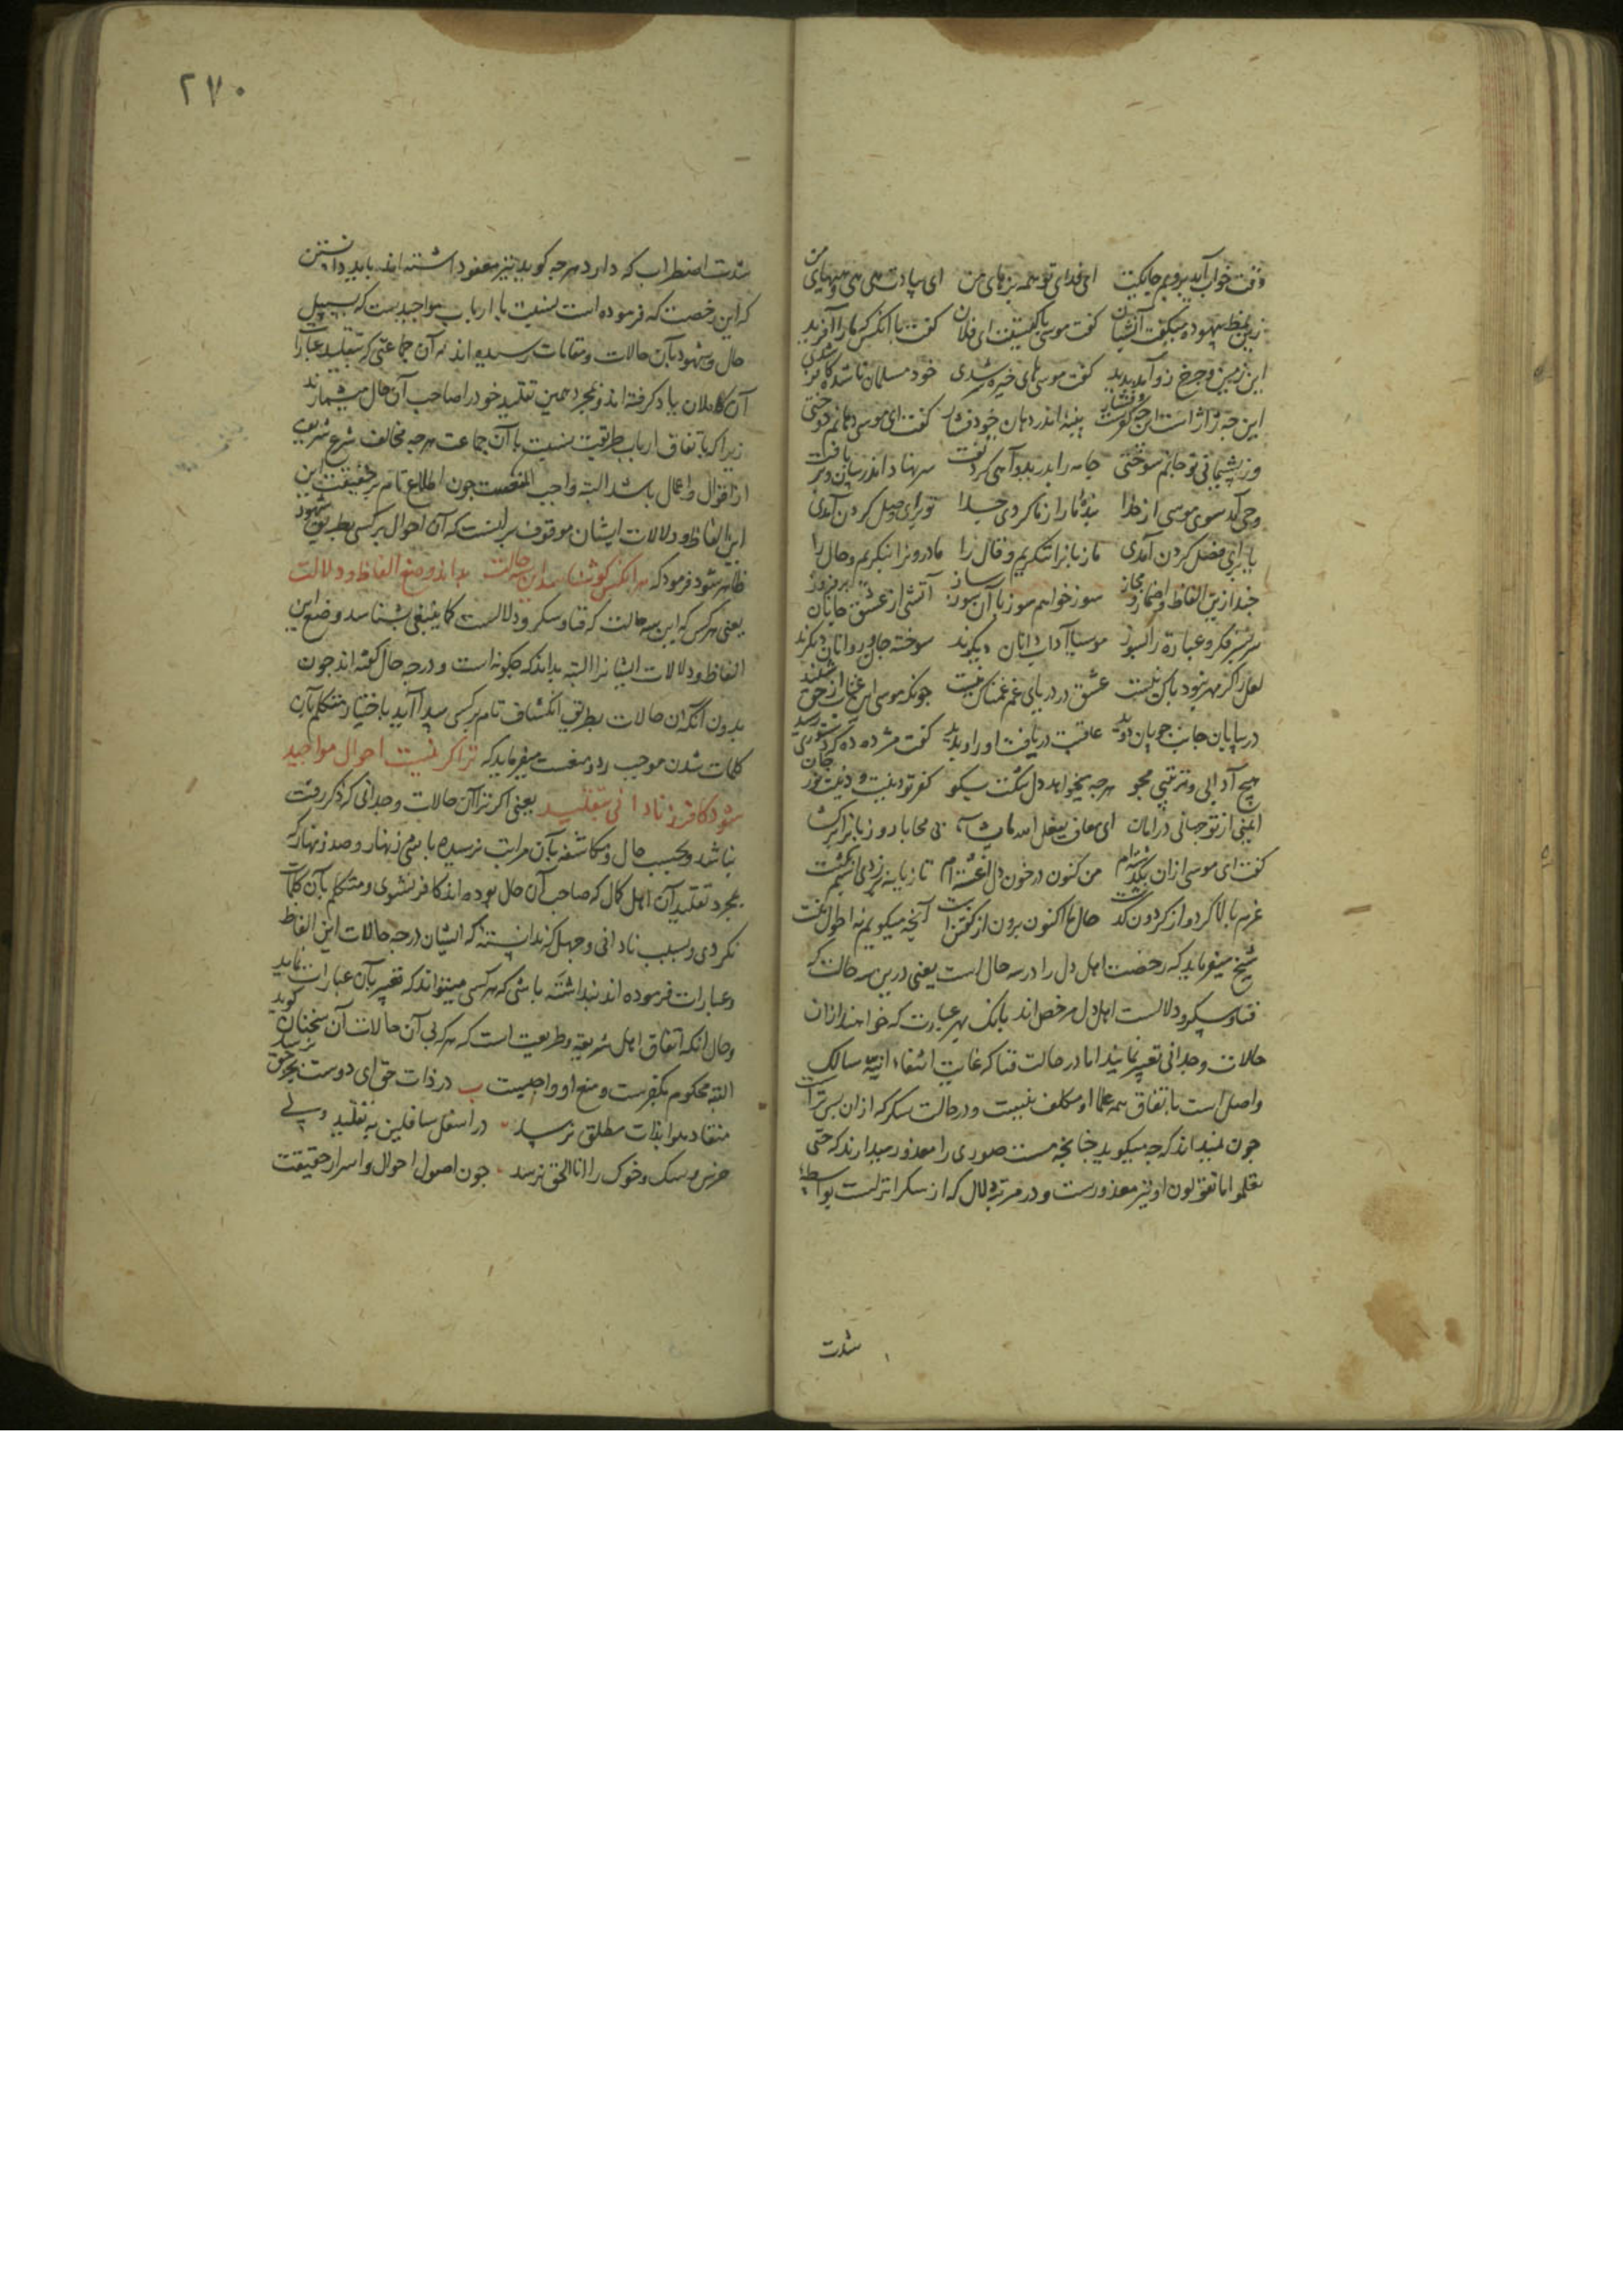 وقت خواب آید بروبم جایکت ای فدای تو همه بزهای من ای بیادت هی هی و هیهای من
زین نمط بیهوده میکفت آن شبان کفت موسی با کیستت ای فلان کفت با آنکس که ما را آفرید
این زمین و چرخ زو آمد پدید کفت موسی های خیره سر شدی خود مسلمان ناشده کافر شدی
این چه ژاژ است این چه کفرست و فشار پنبهٔ اندر دهان خود فشار کفت ای موسی دهانم دوختی
وز پشیمانی تو جانم سوختی جامه را بدرید و آهی کرد تفت سر نهاد اندر بیابان و برفت
وحی آمد سوی موسی از خدا بندهٔ ما را ز ما کردی جدا تو برای وصل کردن آمدی
یا برای فصل کردن آمدی ما زبان را ننکریم و قال را ما درون را بنکریم و حال را
چند ازین الفاظ و اضمار و مجاز سوز خواهم سوز با آن سوز ساز آتشی از عشق در جان برفروز
سر بسر فکر و عبارت را بسوز موسیا آداب دانان دیکرند سوخته جان و روانان دیکرند
لعل را کر مهر نبود باک نیست عشق در دریای غم غمناک نیست چونکه موسی این عتاب از حق شنید
در بیابان جانب چوپان دوید عاقبت دریافت او را و بدید کفت مژده ده که دستوری رسید
هیچ آدابی و ترتیبی مجو هرچه میخواهد دل تنکت بکو کفر تو دینست و دینت نور جان
ایمنی از تو جهانی در امان ای معاف یفعل الله ما یشاء بی محابا رو زبان را برکشا
کفت ای موسی از ان بکذشته‌ام من کنون در خون دل اغشته‌ام تازیانه بر زدی اسبم بکشت
عزم بالا کرد و از کردون کذشت حال ما اکنون برون از کفتن است آنچه میکویم نه احوال منست
شیخ میفرماید که رخصت اهل دل را در سه حال است یعنی درین سه حالت که
فنا و سکر و دلالست اهل دل مرخص‌اند بانک بهر عبارت که خواهند از ان
حالات وجدانی تعبیر نمایند اما در حالت فنا که غایت انتفاء انیّت سالک
واصل است باتفاق همه علما او مکلف نیست و در حالت سکر که از ان پس تر است
چون نمیداند که چه میکوید چنانچه مست صوری را معذور میدارند که حتی
تعلموا ما تقولون او نیز معذورست و در مرتبه دلال که از سکر انزلست بواسطهٔ
شدت
٢٧٠
شدت اضطراب که دارد هرچه کوید نیز معفو داشته‌اند باید دانستن
که این رخصت که فرموده است بنسبت با ارباب مواجیدست که بسبیل
حال و شهود بآن حالات و مقامات رسیده‌اند نه آن جماعتی که بتقلید عبارات
آن کاملان یاد کرفته‌اند و بمجرد همین تقلید خود را صاحب آن حال میشمارند
زیرا که باتفاق ارباب طریقت بنسبت با آن جماعت هرچه مخالف شرع شریف
از اقوال و اعمال باشد البته واجب المنعست چون اطلاع تام بر حقیقت این
این الفاظ و دلالات ایشان موقوف بر اینست که آن احوال بر کسی بطریق شهود
ظاهر شود فرمود که هر انکس کو شناسد این سه حالت بداند وضع الفاظ و دلالت
یعنی هر کس که این سه حالت که فنا و سکر و دلالست کما ینبغی بشناسد وضع این
الفاظ و دلالات ایشان را البته بداند که چکونه است و در چه حال کفته‌اند چون
بدون آنکه ان حالات بطریق انکشاف تام بر کسی پیدا آید باختیار متکلم بآن
کلمات شدن موجب رد و منعست میفرماید که ترا کر نیست احوال مواجید
مشو کافر ز نادانی بتقلید یعنی اکر ترا آن حالات وجدانی که ذکر رفت
نباشد و بحسب حال و مکاشفه بآن مراتب نرسیده باشی زنهار و صد زنهار که
بمجرد تقلید آن اهل کمال که صاحب آن حال بوده‌اند کافر نشوی و متکلم بآن کلمات
نکردی و بسبب نادانی و جهل که ندانسته که ایشان در چه حالات این الفاظ
و عبارات فرموده‌اند پنداشته باشی که هر کسی میتواند که تعبیر بآن عبارات نماید
و حال انکه اتفاق اهل شریعة و طریقت است که هر که بی آن حالات آن سخنان کوید
البته محکوم بکفرست و منع او واجبست ب در ذات حق ای دوست بجز حق نرسد
منقاد هوا بذات مطلق نرسد در اسفل سافلین به تقلید و پی
خرس و سک و خوک را انا الحق نرسد چون اصول احوال و اسرار حقیقت